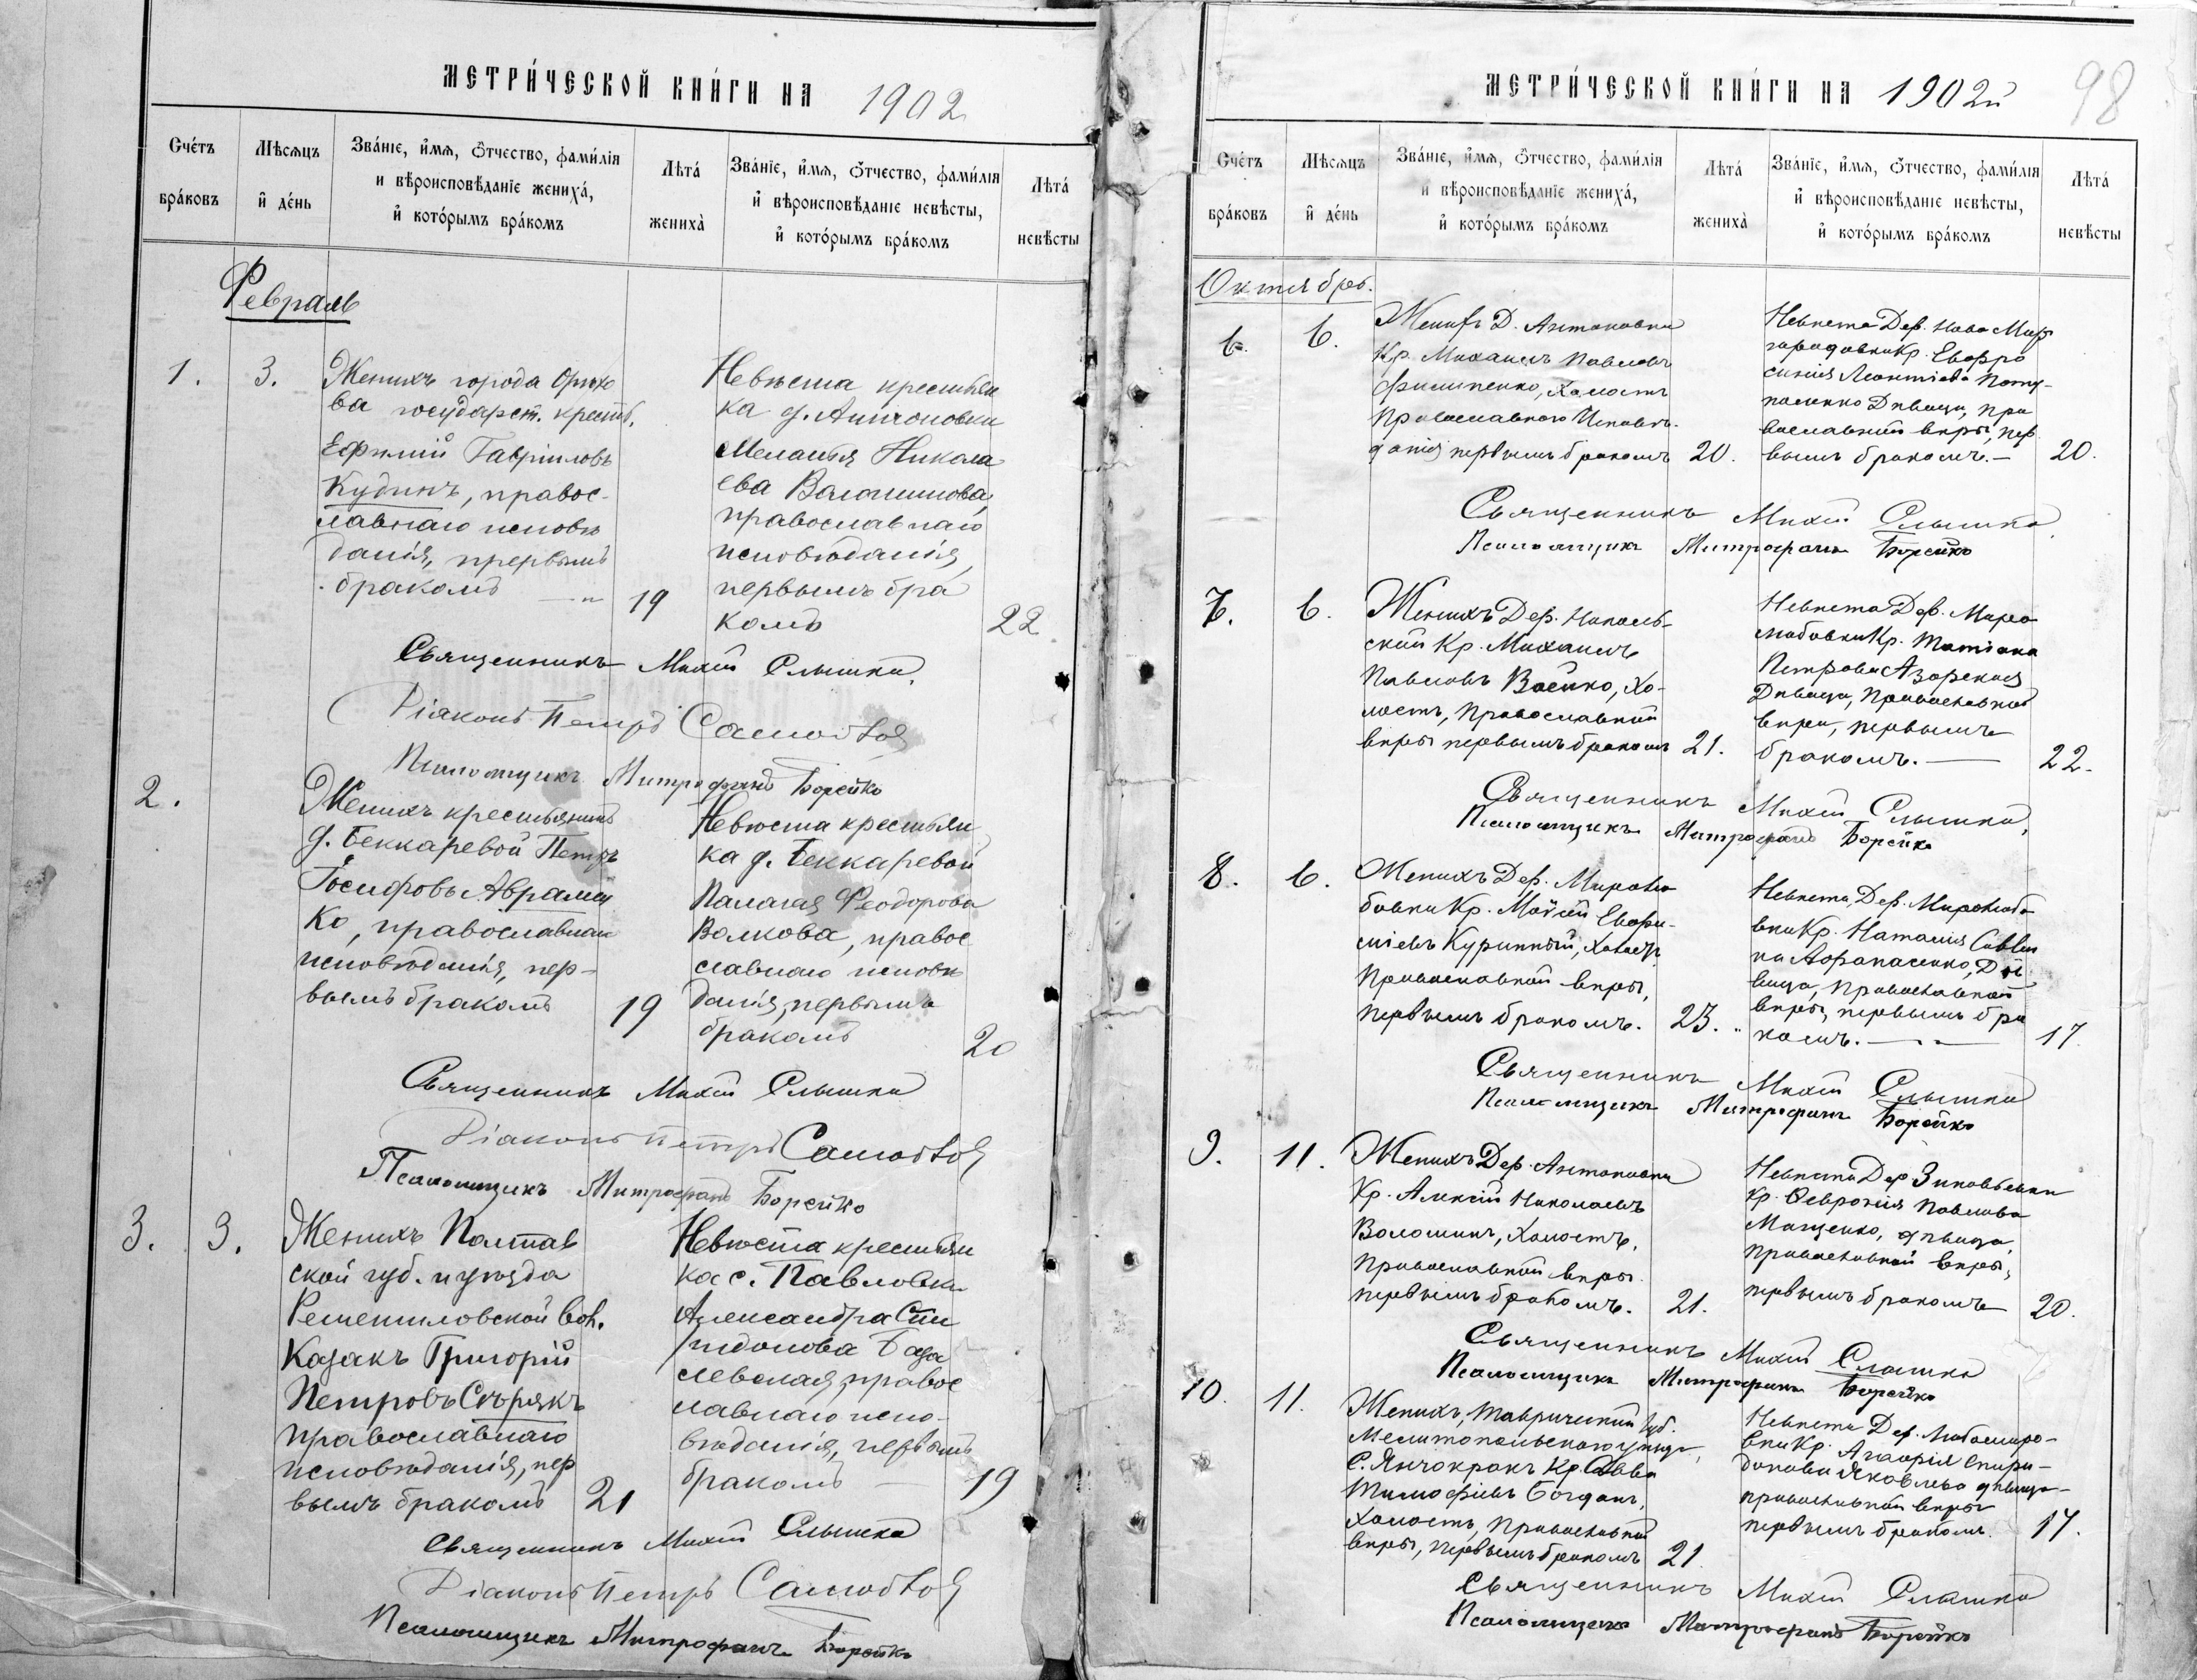 МЕТРИ́ЧЕСКОЙ КНИ́ГИ НА 1902
Сче́тъ бра́ковъ
Мѣсѧцъ и҆ де́нь
Зва́нїе, и҆́мѧ, ѻ҆́тчество, фами́лїѧ
и вѣроисповѣ́данїе жениха́,
и҆ кото́рымъ бра́комъ
Лѣта́ жениха̀
Зва́нїе, и҆́мѧ, ѻ҆́тчество, фами́лїѧ
и҆ вѣроисповѣ́данїе невѣ́сты,
и҆ кото́рымъ бра́комъ
Лѣта́ невѣ́сты
Февраль
1. 3.
Женихъ города Орѣхо
ва государст. крестьб.
Ефимій Гавріиловъ
Кудинъ, правос-
лавнаго исповѣ
данія, прервымъ
бракомъ 19
Невѣста крестьян
ка д. Антоновки
Меланья Никола
ева Волошинова,
православнаго
исповѣданія,
первымъ бра
комъ 22
Священникъ Михаи Слышка
Діаконъ Петръ
Псаломщикъ Митрофанъ Борейко
2.
Женихъ крестьянинъ
д. Беккаревой Петръ
Іосифовъ Аврамен
ко, православнаго
исповѣданія, пер-
вымъ бракомъ 19
Невѣста крестьян
ка д. Беккаревой
Палагея Феодорова
Волкова, правос
славнаго исповѣ
данія, первымъ
бракомъ 20
Священникъ Михаи Слышка
Діаконъ Петръ
Псаломщикъ Митрофанъ Борейко
3. 3.
Женихъ Полтав
ской губ. и уѣзда
Решетиловской вол.
Казакъ Григорій
Петровъ Сѣрякъ
православнаго
исповѣданія, пер
вымъ бракомъ 21
Невѣста крестьян
ка с. Павловки
Александра Спи
ридонова База
левская, правос
лавнаго испо-
вѣданія, первымъ
бракомъ 19
Священникъ Михаи Слышка
Діаконъ Петръ
Псаломщикъ Митрофанъ Борейко
МЕТРИ́ЧЕСКОЙ КНИ́ГИ НА 1902й
98
Сче́тъ бра́ковъ
Мѣсѧцъ и҆ де́нь
Зва́нїе, и҆́мѧ, ѻ҆́тчество, фами́лїѧ
и вѣроисповѣ́данїе жениха́,
и҆ кото́рымъ бра́комъ
Лѣта́ жениха̀
Зва́нїе, и҆́мѧ, ѻ҆́тчество, фами́лїѧ
и҆ вѣроисповѣ́данїе невѣ́сты,
и҆ кото́рымъ бра́комъ
Лѣта́ невѣ́сты
Октябрь.
6. 6.
Женихъ Д. Антоновки
Кр. Михаилъ Павловъ
Филипенко, Холостъ
Православнаго Исповѣ-
данія первымъ бракомъ 20.
Невѣста Дер. Ново Мир
городовки Кр. Евфро
синія Леонтіева Поту-
пасенко Дѣвица, пра
вославний вѣры, пер
вымъ бракомъ. 20.
Священникъ Михаи Слышка
Псаломщикъ Митрофанъ Борейко
7. 6.
Женихъ Дер. Наполь-
ской Кр. Михаилъ
Павловъ Воейко, Хо-
лостъ, Православной
вѣры первымъ бракомъ 21.
Невѣста Дер. Миро
любовки Кр. Татіана
Петрова Азорская
Дѣвица, Православной
вѣры, первымъ
бракомъ. 22.
Священникъ Михаи Слышка,
Псаломщикъ Митрофанъ Борейко
8. 6.
Женихъ Дер. Миролю
бовки Кр. Мойсей Евфи-
міевъ Куринный, Холостъ
Православной вѣры,
первымъ бракомъ. 23.
Невѣста, Дер. Миролюбо
вки Кр. Наталия Савви
на Афанасенко, Дѣ
вица, православной
вѣры, первымъ бра
комъ. 17.
Священникъ Михаи Слышка
Псаломщикъ Митрофанъ Борейко
9. 11.
Женихъ Дер. Антоновки
Кр. Алексій Николаевъ
Волошинъ, Холостъ,
Православной вѣры
первымъ бракомъ. 21.
Невѣста Дер Зиновьевки
Кр. Февронія Павлова
Мащенко, дѣвица,
Православной вѣры,
первымъ бракомъ 20.
Священникъ Михаи Слышка
Псаломщикъ Митрофанъ Борейко
10. 11.
Женихъ, Таврический губ.
Мелитопольскаго уѣзда,
С. Янчокракъ Кр. Савва
Тимофіевъ Богданъ,
Холостъ, Православной
вѣры, первымъ бракомъ 21
Невѣста Дер. Любомиро-
вки Кр. Агафія Спири-
донова Яковлева дѣвица-
православной вѣры
первымъ бракомъ. 17.
Священникъ Михаи Слышка
Псаломщикъ Митрофанъ Борейко